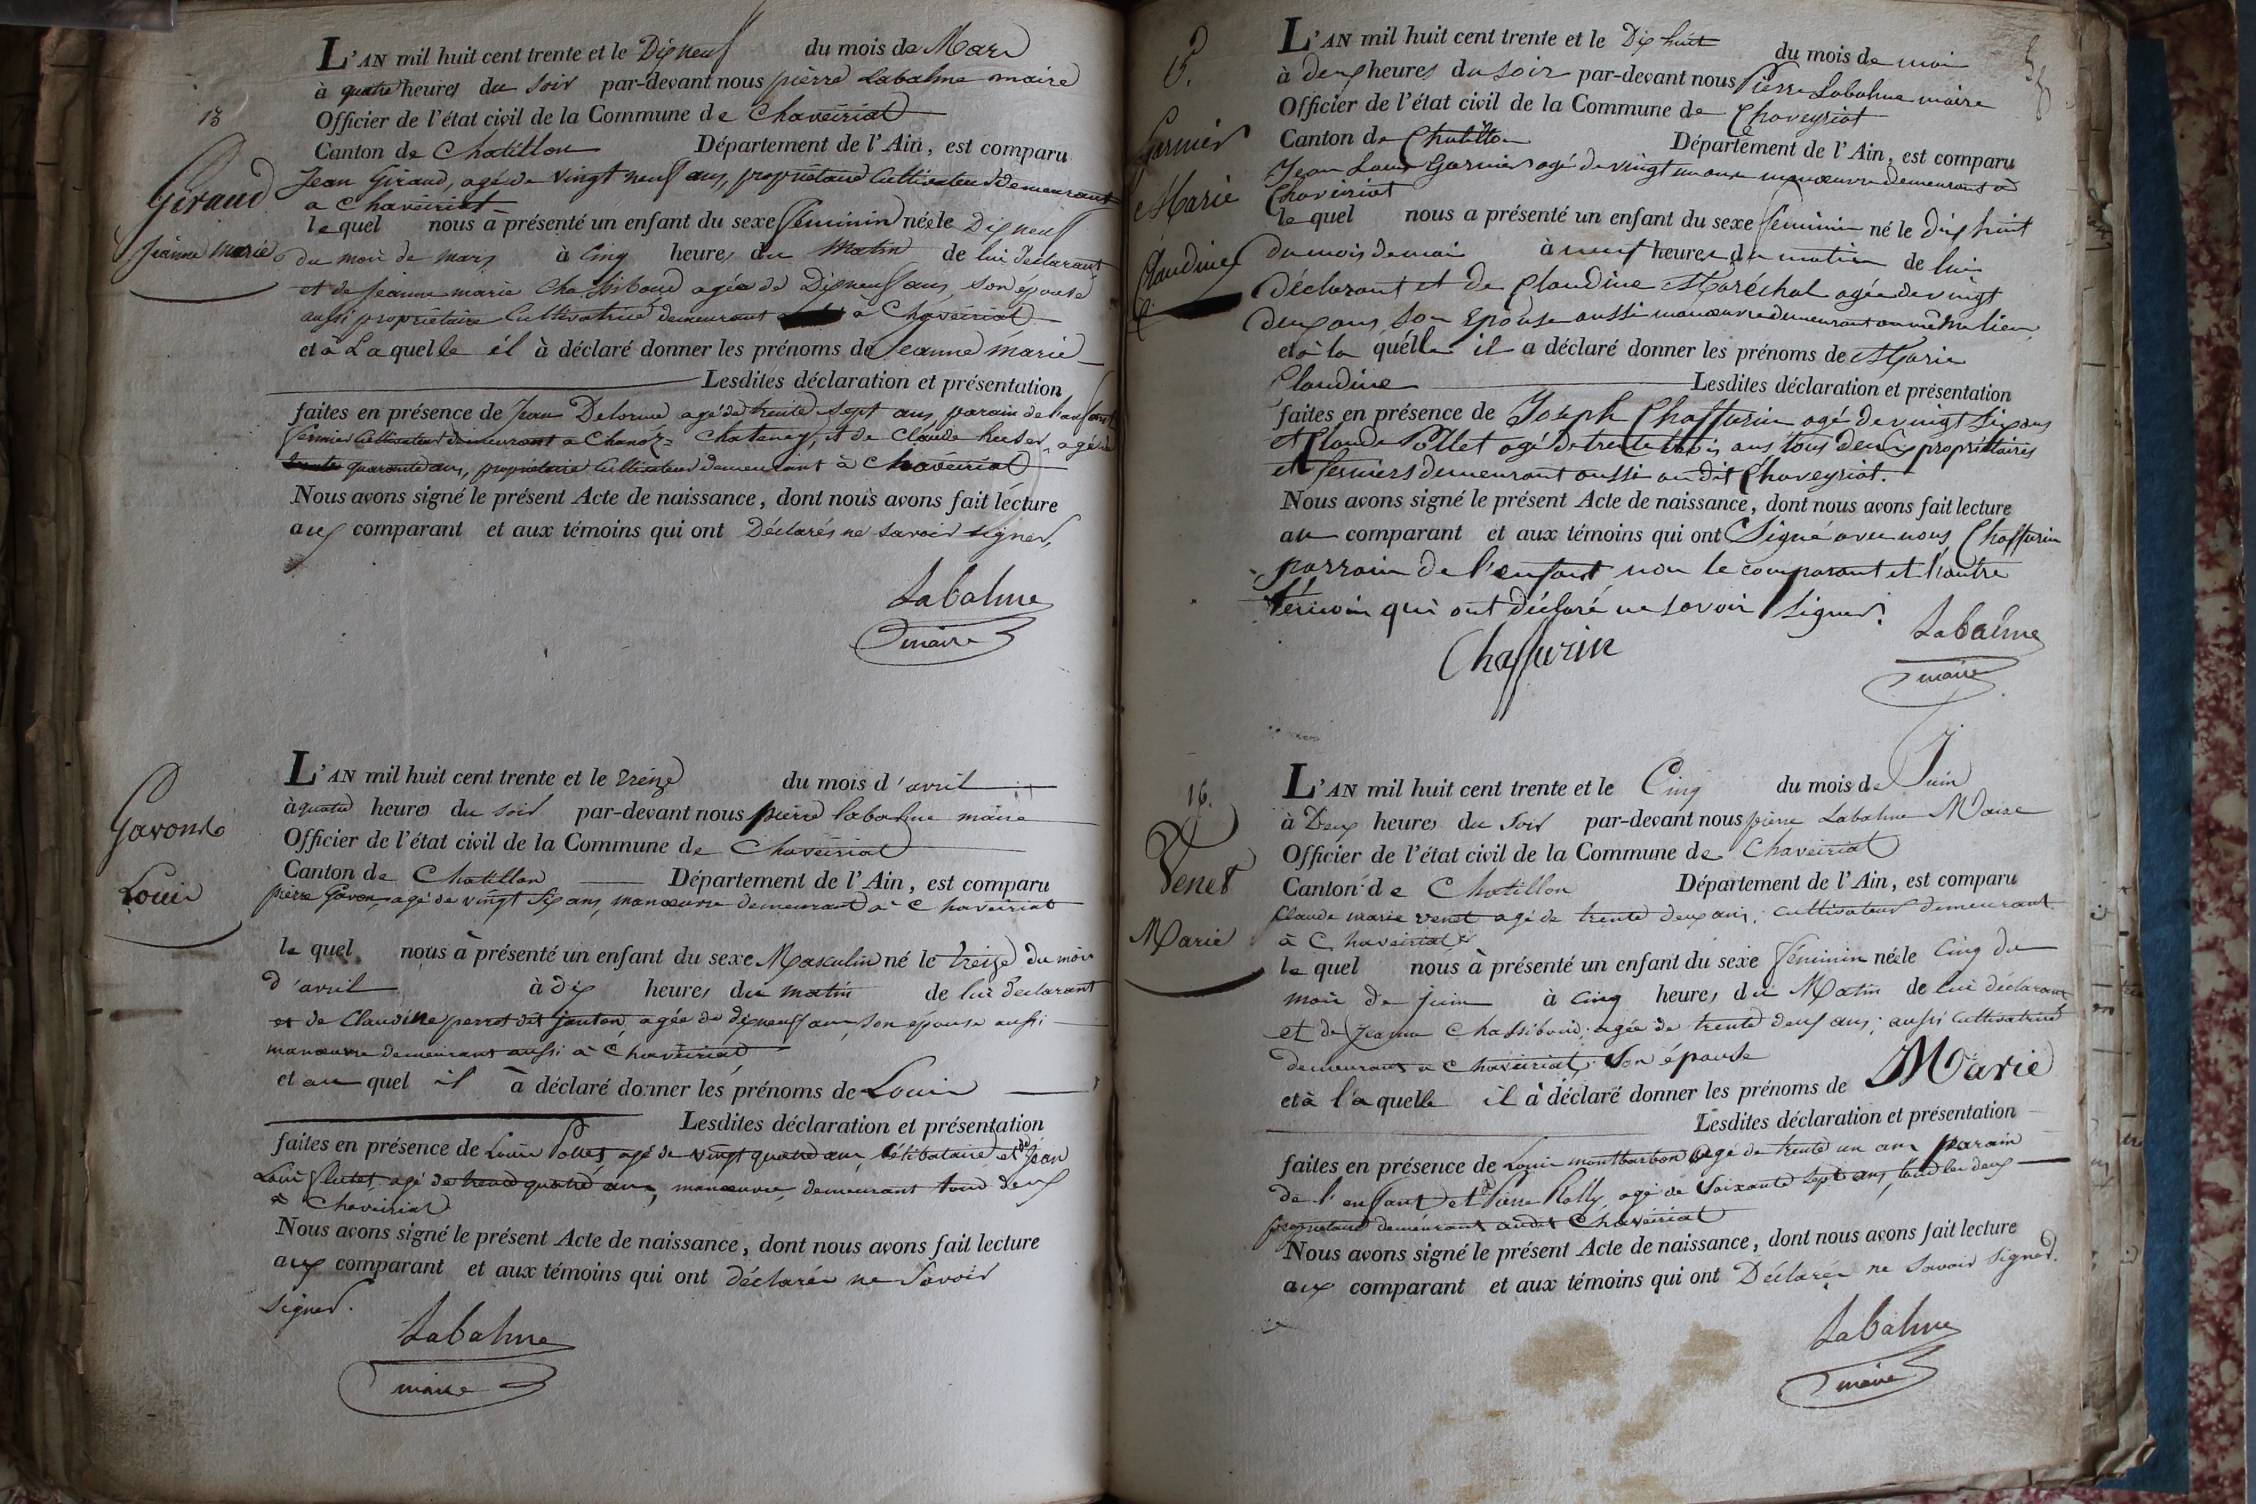 13
Giraud
Jeanne marie
L'AN mil huit cent trente et le Dixneuf du mois de Mars
à quatre heures du soir par-devant nous pierre Labalme maire
Officier de l'état civil de la Commune de Chaveiriat
Canton de Chatillon Département de l'Ain, est comparu
Jean Giraud, agé de vingt neuf ans, propriétaire Cultivateur demeurant
a Chaveiriat
le quel nous à présenté un enfant du sexe féminin née le Dixneuf
du mois de mars à Cinq heures du Matin de lui déclarant
et de jeanne marie Chassiboud agée de Dixneuf ans, son epouse
aussi propriétaire Cultivatrice demeurant à Chaveiriat
et à Laquelle él à déclaré donner les prénoms de Jeanne marie
Lesdites déclaration et présentation
faites en présence de Jean Delorme agé de trente sept ans, parain de l'enfant
fermier Cultivateur demeurant a Chanoz= Chatenay, et de Claude , agé de
trente quarante ans, propriétaire Cultivateur demeurant à Chaveiriat
Nous avons signé le présent Acte de naissance, dont nous avons fait lécture
aux comparant et aux témoins qui ont Déclarés ne savoir signer,
Labalme
maire
Gavond
Louis
L'AN mil huit cent trente et le treize du mois d'avril
à quatre heures du soir par-devant nous pierre labalme maire
Officier de l'état civil de la Commune de Chaveiriat
Canton de Chatillon Département de l'Ain, est comparu
pierre Gavond, agé de vingt six ans, manœuvre demeurant à Chaveiriat
le quel nous à présenté un enfant du sexe Masculin né le treize du mois
d'avril à dix heures du matin de lui declarant
et de Claudine perrot dit janton, agée de dixneuf ans, son epouse aussi
manœuvre demeurant aussi à Chaveiriat
et au quel il à déclaré donner les prénoms de Louis
Lesdites déclaration et présentation
faites en présence de Louis Pollet, agé de vingt quatre ans, Célibataire et de Jean
Louis flutet, agé de trente quatre ans, manœuvre, demeurant tous deux
à Chaveiriat
Nous avons signé le présent Acte de naissance, dont nous avons fait lecture
aux comparant et aux témoins qui ont déclarés ne Savoir
signer.
Labalme
maire
15.
Garnier
Marie
Claudine
L'AN mil huit cent trente et le Dix huit du mois de mai
à deux heures du soir par-devant nous Pierre Labalme maire
Officier de l'état civil de la Commune de Chaveyriat
Canton de Chatillon Département de l'Ain, est comparu
Jean Louis Garnier agé de vingt un ans manœuvre demeurant à
Chaveiriat
le quel nous a présenté un enfant du sexe féminin né le dix huit
du mois de mai à neuf heures du matin de lui
déclarant et de Claudine Maréchal agée de vingt
deux ans son Epouse aussi manœuvre demeurant au même lieu
et à la quélle il a déclaré donner les prénoms de Marie
Claudine Lesdites déclaration et présentation
faites en présence de Joseph Chaffurin agé de vingt six ans
et Claude Pollet agé de trente trois ans tous deux propriétaires
et fermiers demeurant aussi au dit Chaveyriat.
Nous avons signé le présent Acte de naissance, dont nous avons fait lecture
au comparant et aux témoins qui ont Signé avec nous Chaffurin
parrain de l'enfant non le comparant et l'autre
témoin qui ont déclaré ne savoir signer.
Chaffurin
Labalme
maire
16.
Venet
Marie
L'AN mil huit cent trente et le Cinq du mois de Juin
à Deux heures du Soir par-devant nous pierre Labalme Maire
Officier de l'état civil de la Commune de Chaveiriat
Canton de Chatillon Département de l'Ain, est comparu
Claude marie venet agé de trente deux ans, cultivateur demeurant
à Chaveiriat
le quel nous à présenté un enfant du sexe féminin née le cinq du
mois de juin à cinq heures du Matin de lui déclarant
et de Jeanne Chassiboud, agée de trente deux ans; aussi cultivatrice
demeurant a Chaveiriat, son épouse
et à laquelle il à déclaré donner les prénoms de Marie
Lesdites déclaration et présentation
faites en présence de Louis montbarbon agé de trente un ans parain
de l'enfant et de Pierre Rolly, agé de Soixante Sept ans, tous les deux
propriétaires demeurant audit Chaveiriat
Nous avons signé le présent Acte de naissance, dont nous avons fait lecture
aux comparant et aux témoins qui ont Déclarés ne Savoir signer.
Labalme
maire